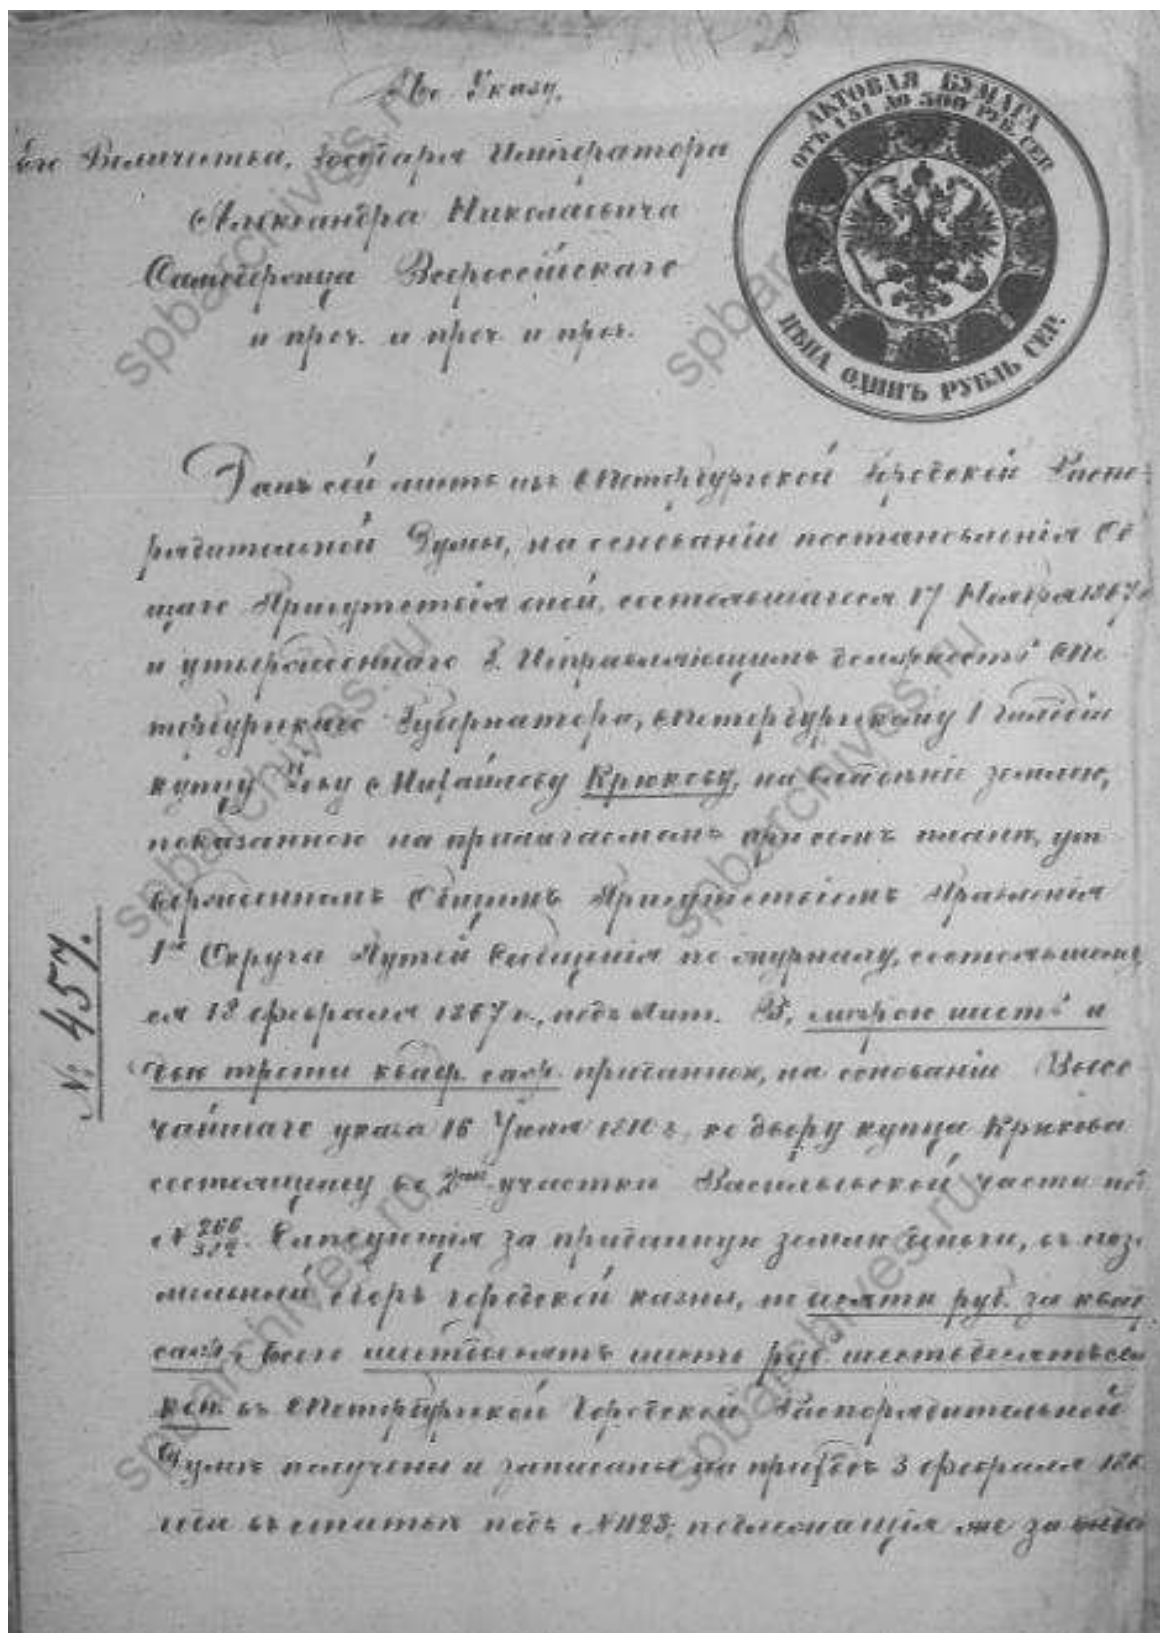 25
По Указу,
Его Величества, Государя Императора
Александра Николаевича
Самодержца Всероссійскаго
и проч. и проч. и проч.
АКТОВАЯ БУМАГА
ОТЪ 151 ДО 300 РУБ. СЕР.
ЦѢНА ОДИНЪ РУБЛЬ СЕР.
Данъ сей листъ изъ СПетербургской Городской Распо-
рядительной Думы, на основаніи постановленія Об
щаго Присутствія оной, состоявшагося 17 Ноября 1867
и утвержденнаго Г. Исправляющимъ должность СПе
тербургскаго Губернатора, СПетербургскому 1 гильдіи
купцу Михайлову Крюкову, на владѣніе землею,
показанною на прилагаемомъ при семъ планѣ, ут
вержденномъ Общимъ Присутствіемъ Правленія
1го Округа Путей Сообщенія по журналу, состоявшему
ся 18 февраля 1867 г., подъ Лит. В, мѣрою шесть и
двѣ трети квадр. саж. приданною, на основаніи Высо
чайшаго указа 16 Іюля 1810 г. ко двору купца Крюкова
состоящему во 2мъ участкѣ Васильевской части по
№ 266/312. Слѣдующія за приданную землю деньги, въ позе
мельный сборъ городской казны, по десяти руб. за квад
саж., всего шестьдесятъ шесть руб. шестьдесятъ сем
коп. въ СПетербургской Городской Распорядительной
Думѣ получены и записаны на приходъ 3 февраля 186
года въ статьѣ подъ № 1123; подлежащія же за
№ 457.
spbarchives.ru
spbarchives.ru
spbarchives.ru
spbarchives.ru
spbarchives.ru
spbarchives.ru